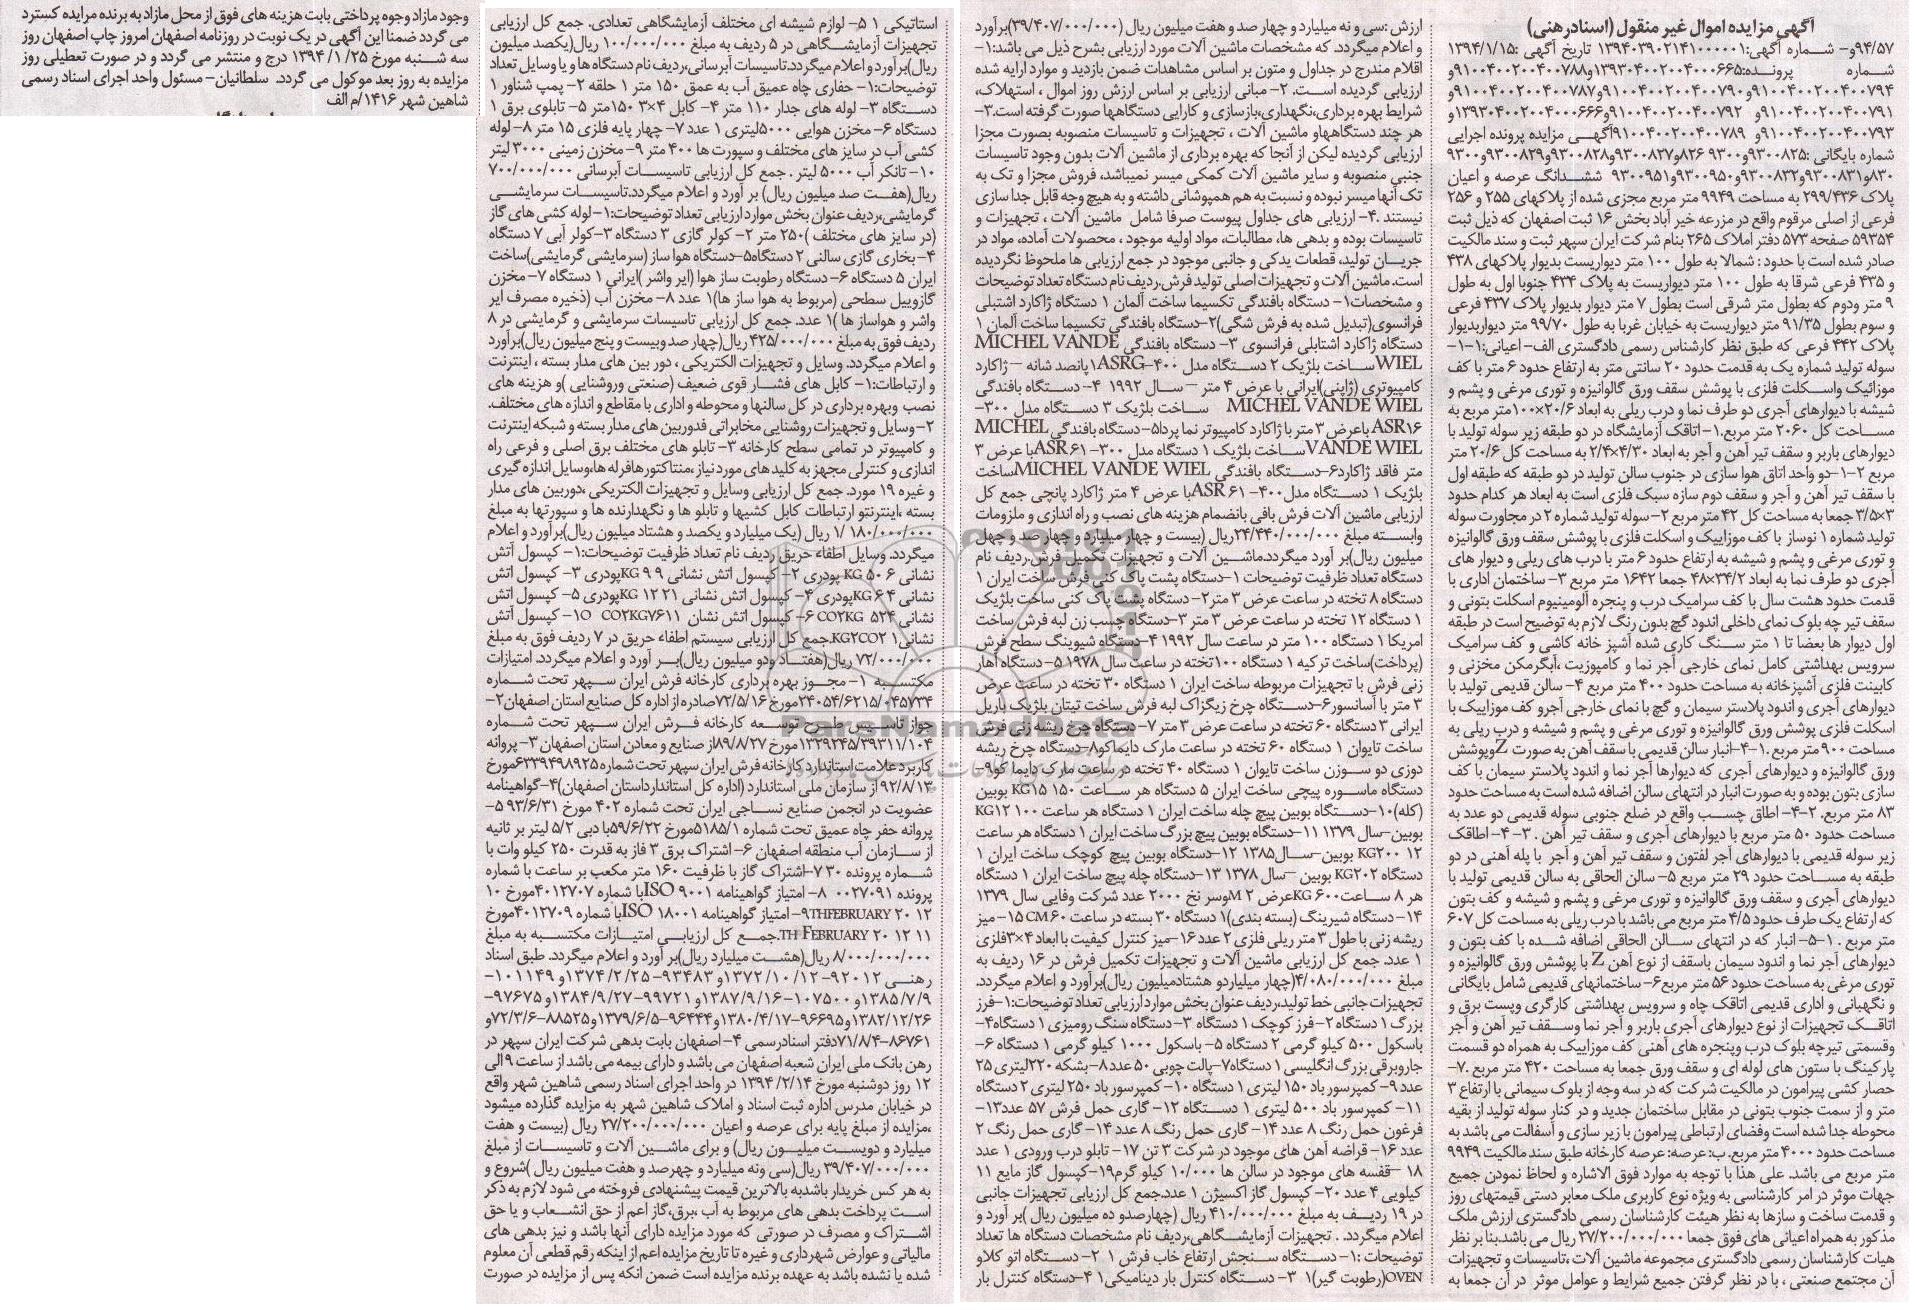 آگهی مزایده اموال غیر منقول (اسنادرهنی)
۹۴/۵۷و- شماره آگهی:۱۳۹۴۰۳۹۰۲۱۴۱۰۰۰۰۰۱ تاریخ آگهی :۱۳۹۴/۱/۱۵
شماره پرونده:۱۳۹۳۰۴۰۰۲۰۰۴۰۰۰۶۶۵و۹۱۰۰۴۰۰۲۰۰۴۰۰۷۸۸و
۹۱۰۰۴۰۰۲۰۰۴۰۰۷۹۴و۹۱۰۰۴۰۰۲۰۰۴۰۰۷۹۰و۹۱۰۰۴۰۰۲۰۰۴۰۰۷۸۷و
۹۱۰۰۴۰۰۲۰۰۴۰۰۷۹۱و ۹۱۰۰۴۰۰۲۰۰۴۰۰۷۹۲ و۱۳۹۳۰۴۰۰۲۰۰۴۰۰۰۶۶۶و
۹۱۰۰۴۰۰۲۰۰۴۰۰۷۹۳و ۹۱۰۰۴۰۰۲۰۰۴۰۰۷۸۹آگهی مزایده پرونده اجرایی
شماره بایگانی :۹۳۰۰۸۲۵و۹۳۰۰ ۸۲۶و۹۳۰۰۸۲۷و۹۳۰۰۸۲۸و۹۳۰۰۸۲۹و۹۳۰۰
۸۳۰و۹۳۰۰۸۳۱و۹۳۰۰۸۳۲و۹۳۰۰۹۵۰و۹۳۰۰۹۵۱ ششدانگ عرصه و اعیان
پلاک ۲۹۹/۴۳۶ به مساحت ۹۹۴۹ متر مربع مجزی شده از پلاکهای ۲۵۵ و ۲۵۶
فرعی از اصلی مرقوم واقع در مزرعه خیر آباد بخش ۱۶ ثبت اصفهان که ذیل ثبت
۵۹۳۵۴ صفحه ۵۷۳ دفتر املاک ۲۶۵ بنام شرکت ایران سپهر ثبت و سند مالکیت
صادر شده است با حدود : شمالا به طول ۱۰۰ متر دیواریست بدیوار پلاکهای ۴۳۸
و ۴۳۵ فرعی شرقا به طول ۱۰۰ متر دیواریست به پلاک ۴۳۴ جنوبا اول به طول
۹ متر ودوم که بطول متر شرقی است بطول ۷ متر دیوار بدیوار پلاک ۴۳۷ فرعی
و سوم بطول ۹۱/۳۵ متر دیواریست به خیابان غربا به طول ۹۹/۷۰ متر دیواربدیوار
پلاک ۴۴۲ فرعی که طبق نظر کارشناس رسمی دادگستری الف- اعیانی:۱-۱-
سوله تولید شماره یک به قدمت حدود ۲۰ سانتی متر به ارتفاع حدود ۶ متر با کف
موزائیک واسکلت فلزی با پوشش سقف ورق گالوانیزه و توری مرغی و پشم و
شیشه با دیوارهای آجری دو طرف نما و درب ریلی به ابعاد ۲۰/۶×۱۰۰متر مربع به
مساحت کل ۲۰۶۰ متر مربع.۱- اتاقک آزمایشگاه در دو طبقه زیر سوله تولید با
دیوارهای باربر و سقف تیر آهن و آجر به ابعاد ۴/۳۰×۲/۴ به مساحت کل ۲۰/۶ متر
مربع ۲-۱-دو واحد اتاق هوا سازی در جنوب سالن تولید در دو طبقه که طبقه اول
با سقف تیر آهن و آجر و سقف دوم سازه سبک فلزی است به ابعاد هر کدام حدود
۳×۳/۵ جمعا به مساحت کل ۴۲ متر مربع ۲- سوله تولید شماره ۲ در مجاورت سوله
تولید شماره ۱ نوساز با کف موزاییک و اسکلت فلزی با پوشش سقف ورق گالوانیزه
و توری مرغی و پشم و شیشه به ارتفاع حدود ۶ متر با درب های ریلی و دیوار های
آجری دو طرف نما به ابعاد ۳۴/۲×۴۸ جمعا ۱۶۴۲ متر مربع ۳- ساختمان اداری با
قدمت حدود هشت سال با کف سرامیک درب و پنجره آلومینیوم اسکلت بتونی و
سقف تیر چه بلوک نمای داخلی اندود گچ بدون رنگ لازم به توضیح است در طبقه
اول دیوار ها بعضا تا ۱ متر سنگ کاری شده آشپز خانه کاشی و کف سرامیک
سرویس بهداشتی کامل نمای خارجی آجر نما و کامپوزیت ،آبگرمکن مخزنی و
کابینت فلزی آشپزخانه به مساحت حدود ۴۰۰ متر مربع ۴- سالن قدیمی تولید با
دیوارهای آجری و اندود پلاستر سیمان و گچ با نمای خارجی آجرو کف موزاییک با
اسکلت فلزی پوشش ورق گالوانیزه و توری مرغی و پشم و شیشه و درب ریلی به
مساحت ۹۰۰ متر مربع .۱-۴-انبار سالن قدیمی با سقف آهن به صورت Zوپوشش
ورق گالوانیزه و دیوارهای آجری که دیوارها آجر نما و اندود پلاستر سیمان با کف
سازی بتون بوده و به صورت انبار در انتهای سالن اضافه شده است به مساحت حدود
۸۳ متر مربع. ۲-۴- اطاق چسب واقع در ضلع جنوبی سوله قدیمی دو عدد به
مساحت حدود ۵۰ متر مربع با دیوارهای آجری و سقف تیر آهن .۳-۴- اطاقک
زیر سوله قدیمی با دیوارهای آجر لفتون و سقف تیر آهن و آجر با پله آهنی در دو
طبقه به مساحت حدود ۲۹ متر مربع ۵- سالن الحاقی به سالن قدیمی تولید با
دیوارهای آجری و سقف ورق گالوانیزه و توری مرغی و پشم و شیشه و کف بتون
که ارتفاع یک طرف حدود ۴/۵ متر مربع می باشد با درب ریلی به مساحت کل ۶۰۷
متر مربع .۱-۵- انبار که در انتهای سالن الحاقی اضافه شده با کف بتون و
دیوارهای آجر نما و اندود سیمان باسقف از نوع آهن Z با پوشش ورق گالوانیزه و
توری مرغی به مساحت حدود ۵۶ متر مربع۶- ساختمانهای قدیمی شامل بایگانی
و نگهبانی و اداری قدیمی اتاقک چاه و سرویس بهداشتی کارگری وپست برق و
اتاقک تجهیزات از نوع دیوارهای آجری باربر و آجر نما وسقف تیر آهن و آجر
وقسمتی تیرچه بلوک درب وپنجره های آهنی کف موزاییک به همراه دو قسمت
پارکینگ با ستون های لوله ای و سقف ورق جمعا به مساحت ۴۲۰ متر مربع .۷-
حصار کشی پیرامون در مالکیت شرکت که در سه وجه از بلوک سیمانی با ارتفاع ۳
متر و از سمت جنوب بتونی در مقابل ساختمان جدید و در کنار سوله تولید از بقیه
محوطه جدا شده است وفضای ارتباطی پیرامون با زیر سازی و آسفالت می باشد به
مساحت حدود ۴۰۰۰ متر مربع. ب:عرصه: عرصه کارخانه طبق سند مالکیت ۹۹۴۹
متر مربع می باشد. علی هذا با توجه به موارد فوق الاشاره و لحاظ نمودن جمیع
جهات موثر در امر کارشناسی به ویژه نوع کاربری ملک معابر دستی قیمتهای روز
و قدمت ساخت و سازها به نظر هیئت کارشناسان رسمی دادگستری ارزش ملک
مذکور به همراه اعیانی های فوق جمعا ۲۷/۲۰۰/۰۰۰/۰۰۰ ریال می باشد.بنا بر نظر
هیات کارشناسان رسمی دادگستری مجموعه ماشین آلات ،تاسیسات و تجهیزات
آن مجتمع صنعتی ، با در نظر گرفتن جمیع شرایط و عوامل موثر در آن جمعا به
ارزش :سی و نه میلیارد و چهار صد و هفت میلیون ریال (۳۹/۴۰۷/۰۰۰/۰۰۰)برآورد
و اعلام میگردد. که مشخصات ماشین آلات مورد ارزیابی بشرح ذیل می باشد:۱-
اقلام مندرج در جداول و متون بر اساس مشاهدات ضمن بازدید و موارد ارایه شده
ارزیابی گردیده است. ۲- مبانی ارزیابی بر اساس ارزش روز اموال ، استهلاک،
شرایط بهره برداری،نگهداری،بازسازی و کارایی دستگاهها صورت گرفته است.۳-
هر چند دستگاههاو ماشین آلات ، تجهیزات و تاسیسات منصوبه بصورت مجزا
ارزیابی گردیده لیکن از آنجا که بهره برداری از ماشین آلات بدون وجود تاسیسات
جنبی منصوبه و سایر ماشین آلات کمکی میسر نمیباشد، فروش مجزا و تک به
تک آنها میسر نبوده و نسبت به هم همپوشانی داشته و به هیچ وجه قابل جدا سازی
نیستند .۴- ارزیابی های جداول پیوست صرفا شامل ماشین آلات ، تجهیزات و
تاسیسات بوده و بدهی ها، مطالبات، مواد اولیه موجود ، محصولات آماده، مواد در
جریان تولید، قطعات یدکی و جانبی موجود در جمع ارزیابی ها ملحوظ نگردیده
است. ماشین آلات و تجهیزات اصلی تولید فرش.ردیف نام دستگاه تعداد توضیحات
و مشخصات۱- دستگاه بافندگی تکسیما ساخت آلمان ۱ دستگاه ژاکارد اشتبلی
فرانسوی(تبدیل شده به فرش شگی)۲-دستگاه بافندگی تکسیما ساخت آلمان ۱
دستگاه ژاکارد اشتابلی فرانسوی ۳- دستگاه بافندگی MICHEL VANDE
WIELساخت بلژیک ۲ دستگاه مدل ASRG-۴۰۰ ۱پانصد شانه -ژاکارد
کامپیوتری (ژاپنی)ایرانی با عرض ۴ متر - سال ۱۹۹۲ ۴- دستگاه بافندگی
MICHEL VANDE WIEL ساخت بلژیک ۳ دستگاه مدل ۳۰۰-
ASR۱۶ باعرض ۳ متر با ژاکارد کامپیوتر نما پردا۵- دستگاه بافندگی MICHEL
VANDE WIELساخت بلژیک ۱ دستگاه مدل ۳۰۰- ASR۶۱با عرض ۳
متر فاقد ژاکارد۶-دستگاه بافندگی MICHEL VANDE WIELساخت
بلژیک ۱ دستگاه مدل۴۰۰- ASR۶۱با عرض ۴ متر ژاکارد پانچی جمع کل
ارزیابی ماشین آلات فرش بافی بانضمام هزینه های نصب و راه اندازی و ملزومات
وابسته مبلغ ۲۴/۴۴۰/۰۰۰/۰۰۰ریال (بیست و چهار میلیارد و چهار صد و چهل
میلیون ریال)بر آورد میگردد.ماشین آلات و تجهیزات تکمیل فرش.ردیف نام
دستگاه تعداد ظرفیت توضیحات ۱-دستگاه پشت پاک کنی فرش ساخت ایران ۱
دستگاه ۸ تخته در ساعت عرض ۳ متر۲- دستگاه پشت پاک کنی ساخت بلژیک
۱ دستگاه ۱۲ تخته در ساعت عرض ۳ متر ۳-دستگاه چسب زن لبه فرش ساخت
امریکا ۱ دستگاه ۱۰۰ متر در ساعت سال ۱۹۹۲ ۴-دستگاه شیوینگ سطح فرش
(پرداخت)ساخت ترکیه ۱ دستگاه ۱۰۰تخته در ساعت سال ۱۹۷۸ ۵- دستگاه آهار
زنی فرش با تجهیزات مربوطه ساخت ایران ۱ دستگاه ۳۰ تخته در ساعت عرض
۳ متر با آسانسور۶-دستگاه چرخ زیگزاک لبه فرش ساخت تیتان بلژیک باریل
ایرانی ۳ دستگاه ۶۰ تخته در ساعت عرض ۳ متر ۷- دستگاه چرخ ریشه زنی فرش
ساخت تایوان ۱ دستگاه ۶۰ تخته در ساعت مارک دایماکو۸-دستگاه چرخ ریشه
دوزی دو سوزن ساخت تایوان ۱ دستگاه ۴۰ تخته در ساعت مارک دایما کو۹-
دستگاه ماسوره پیچی ساخت ایران ۵ دستگاه هر ساعت ۱۵۰ KG۱۵ بوبین
(کله)۱۰-دستگاه بوبین پیچ چله ساخت ایران ۱ دستگاه هر ساعت ۱۰۰ KG۱۲
بوبین-سال ۱۳۷۹ ۱۱-دستگاه بوبین پیچ بزرگ ساخت ایران ۱ دستگاه هر ساعت
۱۲ KG۲۰۰ بوبین-سال۱۳۸۵ ۱۲-دستگاه بوبین پیچ کوچک ساخت ایران ۱
دستگاه KG۲۰۲ بوبین -سال ۱۳۷۸ ۱۳-دستگاه چله پیچ ساخت ایران ۱ دستگاه
هر ۸ ساعت۶۰۰ KGعرض ۲ Mوسر نخ ۲۰۰۰ عدد شرکت وفایی سال ۱۳۷۹
۱۴-دستگاه شیرینگ (بسته بندی)۱ دستگاه ۳۰ بسته در ساعت ۶۰ CM ۱۵-میز
ریشه زنی با طول ۳ متر ریلی فلزی ۲ عدد۱۶-میز کنترل کیفیت با ابعاد ۴×۳فلزی
۱ عدد. جمع کل ارزیابی ماشین آلات و تجهیزات تکمیل فرش در ۱۶ ردیف به
مبلغ ۴/۰۸۰/۰۰۰/۰۰۰(چهار میلیاردو هشتادمیلیون ریال)برآورد و اعلام میگردد.
تجهیزات جانبی خط تولید،ردیف عنوان بخش موارد ارزیابی تعداد توضیحات:۱-فرز
بزرگ ۱ دستگاه ۲-فرز کوچک ۱ دستگاه ۳-دستگاه سنگ رومیزی ۱ دستگاه۴-
باسکول ۵۰۰ کیلو گرمی ۲ دستگاه ۵- باسکول ۱۰۰۰ کیلو گرمی ۱ دستگاه ۶-
جاروبرقی بزرگ انگلیسی ۱ دستگاه۷-پالت چوبی ۵۰ عدد۸-بشکه ۲۲۰لیتری ۲۵
عدد ۹-کمپرسور باد ۱۵۰ لیتری ۱ دستگاه ۱۰- کمپرسور باد ۲۵۰ لیتری ۲ دستگاه
۱۱- کمپرسور باد ۵۰۰ لیتری ۱ دستگاه ۱۲- گاری حمل فرش ۵۷ عدد۱۳-
فرغون حمل رنگ ۸ عدد ۱۴- گاری حمل رنگ ۸ عدد ۱۴- گاری حمل رنگ ۲
عدد ۱۶- قراضه آهن های موجود در شرکت ۳ تن ۱۷- تابلو درب ورودی ۱ عدد
۱۸ -قفسه های موجود در سالن ها ۱۰/۰۰۰ کیلو گرم۱۹-کپسول گاز مایع ۱۱
کیلویی ۴ عدد ۲۰- کپسول گاز اکسیژن ۱ عدد.جمع کل ارزیابی تجهیزات جانبی
در ۱۹ ردیف به مبلغ ۴۱۰/۰۰۰/۰۰۰ ریال (چهارصدو ده میلیون ریال )بر آورد و
اعلام میگردد. . تجهیزات آزمایشگاهی،ردیف نام مشخصات دستگاه ها تعداد
توضیحات :۱- دستگاه سنجش ارتفاع خاب فرش ۱ ۲- دستگاه اتو کلاو
OVEN(رطوبت گیر)۱ ۳-دستگاه کنترل بار دینامیکی۱ ۴-دستگاه کنترل بار
استاتیکی ۱ ۵- لوازم شیشه ای مختلف آزمایشگاهی تعدادی. جمع کل ارزیابی
تجهیزات آزمایشگاهی در ۵ ردیف به مبلغ ۱۰۰/۰۰۰/۰۰۰ ریال(یکصد میلیون
ریال)برآورد و اعلام میگردد.تاسیسات آبرسانی،ردیف نام دستگاه ها و یا وسایل تعداد
توضیحات:۱- حفاری چاه عمیق آب به عمق ۱۵۰ متر ۱ حلقه ۲- پمپ شناور ۱
دستگاه ۳- لوله های جدار ۱۱۰ متر ۴- کابل ۴×۳ ۱۵۰متر ۵- تابلوی برق ۱
دستگاه ۶- مخزن هوایی ۵۰۰۰لیتری ۱ عدد ۷- چهار پایه فلزی ۱۵ متر ۸- لوله
کشی آب در سایز های مختلف و سپورت ها ۴۰۰ متر ۹- مخزن زمینی ۳۰۰۰ لیتر
۱۰- تانکر آب ۵۰۰۰ لیتر . جمع کل ارزیابی تاسیسات آبرسانی ۷۰۰/۰۰۰/۰۰۰
ریال(هفت صد میلیون ریال) بر آورد و اعلام میگردد.تاسیسات سرمایشی
گرمایشی،ردیف عنوان بخش موارد ارزیابی تعداد توضیحات:۱-لوله کشی های گاز
(در سایز های مختلف )۲۵۰ متر ۲- کولر گازی ۳ دستگاه ۳-کولر آبی ۷ دستگاه
۴- بخاری گازی سالنی ۲ دستگاه۵-دستگاه هوا ساز (سرمایشی گرمایشی)ساخت
ایران ۵ دستگاه ۶- دستگاه رطوبت ساز هوا (ایر واشر )ایرانی ۱ دستگاه ۷- مخزن
گازوییل سطحی (مربوط به هوا ساز ها)۱ عدد ۸- مخزن آب (ذخیره مصرف ایر
واشر و هواساز ها )۱ عدد. جمع کل ارزیابی تاسیسات سرمایشی و گرمایشی در ۸
ردیف فوق به مبلغ ۴۲۵/۰۰۰/۰۰۰ ریال(چهار صد وبیست و پنج میلیون ریال)برآورد
و اعلام میگردد. وسایل و تجهیزات الکتریکی ، دور بین های مدار بسته ، اینترنت
و ارتباطات:۱- کابل های فشار قوی ضعیف (صنعتی وروشنایی )و هزینه های
نصب وبهره برداری در کل سالنها و محوطه و اداری با مقاطع و اندازه های مختلف.
۲-وسایل و تجهیزات روشنایی مخابراتی فدوربین های مدار بسته و شبکه اینترنت
و کامپیوتر در تمامی سطح کارخانه ۳- تابلو های مختلف برق اصلی و فرعی راه
اندازی و کنترلی مجهز به کلید های مورد نیاز ،منتاکتورهافرله ها،وسایل اندازه گیری
و غیره ۱۹ مورد. جمع کل ارزیابی وسایل و تجهیزات الکتریکی ،دوربین های مدار
بسته ،اینترنتو ارتباطات کابل کشیها و تابلو ها و نگهدارنده ها و سپورتها به مبلغ
۱/۱۸۰/۰۰۰/۰۰۰ ریال (یک میلیارد و یکصد و هشتاد میلیون ریال)برآورد و اعلام
میگردد. وسایل اطفاء حریق ردیف نام تعداد ظرفیت توضیحات:۱- کپسول آتش
نشانی ۶ ۵۰ KG پودری ۲- کپسول اتش نشانی ۹ ۹ KGپودری ۳- کپسول اتش
نشانی ۴ ۶ KGپودری ۴- کپسول اتش نشانی ۲۱ ۱۲ KGپودری ۵- کپسول اتش
نشانی ۴ ۵۲ CO۲KG ۶- کپسول آتش نشان ۱۱ ۶ CO۲KG۷ ۱۰- کپسول آتش
نشانی ۱ KG۲CO۲.جمع کل ارزیابی سیستم اطفاء حریق در ۷ ردیف فوق به مبلغ
۷۲/۰۰۰/۰۰۰ ریال(هفتاد ودو میلیون ریال)بر آورد و اعلام میگردد. امتیازات
مکتسبه ۱- مجوز بهره برداری کارخانه فرش ایران سپهر تحت شماره
۳۴۰۵۴/۶۲۱۵/۰۴۵۷۳۴مورخ ۷۲/۵/۱۶صادره از اداره کل صنایع استان اصفهان۲-
جواز تاسیس طرح توسعه کارخانه فرش ایران سپهر تحت شماره
۱۳۲۹۲۴۵/۳۹۳۱۱/۱۰۴مورخ ۸۹/۸/۲۷از صنایع و معادن استان اصفهان ۳- پروانه
کاربرد علامت استاندارد کارخانه فرش ایران سپهر تحت شماره ۶۳۳۹۴۹۸۹۲۵مورخ
۹۲/۸/۱۳ از سازمان ملی استاندارد (اداره کل استاندارداستان اصفهان)۴-گواهینامه
عضویت در انجمن صنایع نساجی ایران تحت شماره ۴۰۲ مورخ ۹۳/۶/۳۱ ۵-
پروانه حفر چاه عمیق تحت شماره ۵۱۸۵/۱مورخ ۵۹/۶/۲۲با دبی ۵/۲ لیتر بر ثانیه
از سازمان آب منطقه اصفهان ۶- اشتراک برق ۳ فاز به قدرت ۲۵۰ کیلو وات با
شماره پرونده ۳۰ ۷-اشتراک گاز با ظرفیت ۱۶۰ متر مکعب بر ساعت با شماره
پرونده ۰۰۲۷۰۹۱ ۸- امتیاز گواهینامه ISO ۹۰۰۱با شماره ۴۰۱۲۷۰۷مورخ ۱۰
۱۲ ۲۰ THFEBRUARY۹- امتیاز گواهینامه ISO ۱۸۰۰۱با شماره ۴۰۱۲۷۰۹مورخ
۱۱ ۱۲ ۲۰ TH FEBRUARY.جمع کل ارزیابی امتیازات مکتسبه به مبلغ
۸/۰۰۰/۰۰۰/۰۰۰ ریال(هشت میلیارد ریال)بر آورد و اعلام میگردد. طبق اسناد
رهنی ۹۲۰۱۲-۱۳۷۲/۱۰/۱۲و ۹۳۴۸۳-۱۳۷۴/۲/۲۵و ۱۰۱۱۴۹-
۱۳۸۵/۷/۹و ۱۰۷۵۰۰-۱۳۸۷/۹/۱۶و ۹۹۷۲۱-۱۳۸۴/۹/۲۷و ۹۷۶۷۵-
۱۳۸۲/۱۲/۲۶و ۹۶۶۹۵-۱۳۸۰/۴/۱۷و ۹۶۴۴۴-۱۳۷۹/۶/۵و۸۸۵۲۵-۷۲/۳/۶و
۸۶۷۶۱-۷۱/۸/۴دفتر اسنادرسمی ۴- اصفهان بابت بدهی شرکت ایران سپهر در
رهن بانک ملی ایران شعبه اصفهان می باشد و دارای بیمه می باشد از ساعت ۹ الی
۱۲ روز دوشنبه مورخ ۱۳۹۴/۲/۱۴ در واحد اجرای اسناد رسمی شاهین شهر واقع
در خیابان مدرس اداره ثبت اسناد و املاک شاهین شهر به مزایده گذارده میشود
،مزایده از مبلغ پایه برای عرصه و اعیان ۲۷/۲۰۰/۰۰۰/۰۰۰ ریال (بیست و هفت
میلیارد و دویست میلیون ریال) و برای ماشین آلات و تاسیسات از مبلغ
۳۹/۴۰۷/۰۰۰/۰۰۰ ریال(سی ونه میلیارد و چهرصد و هفت میلیون ریال )شروع و
به هر کس خریدار باشدبه بالاترین قیمت پیشنهادی فروخته می شود لازم به ذکر
است پرداخت بدهی های مربوط به آب ،برق،گاز اعم از حق انشعاب و یا حق
اشتراک و مصرف در صورتی که مورد مزایده دارای آنها باشد و نیز بدهی های
مالیاتی و عوارض شهرداری و غیره تا تاریخ مزایده اعم از اینکه رقم قطعی آن معلوم
شده یا نشده باشد به عهده برنده مزایده است ضمن آنکه پس از مزایده در صورت
وجود مازاد وجوه پرداختی بابت هزینه های فوق از محل مازاد به برنده مزایده کسترد
می گردد ضمنا این آگهی در یک نوبت در روزنامه اصفهان امروز چاپ اصفهان روز
سه شنبه مورخ ۱۳۹۴/۱/۲۵ درج و منتشر می گردد و در صورت تعطیلی روز
مزایده به روز بعد موکول می گردد. سلطانیان- مسئول واحد اجرای اسناد رسمی
شاهین شهر ۱۴۱۶/م الف
ParsNamadData